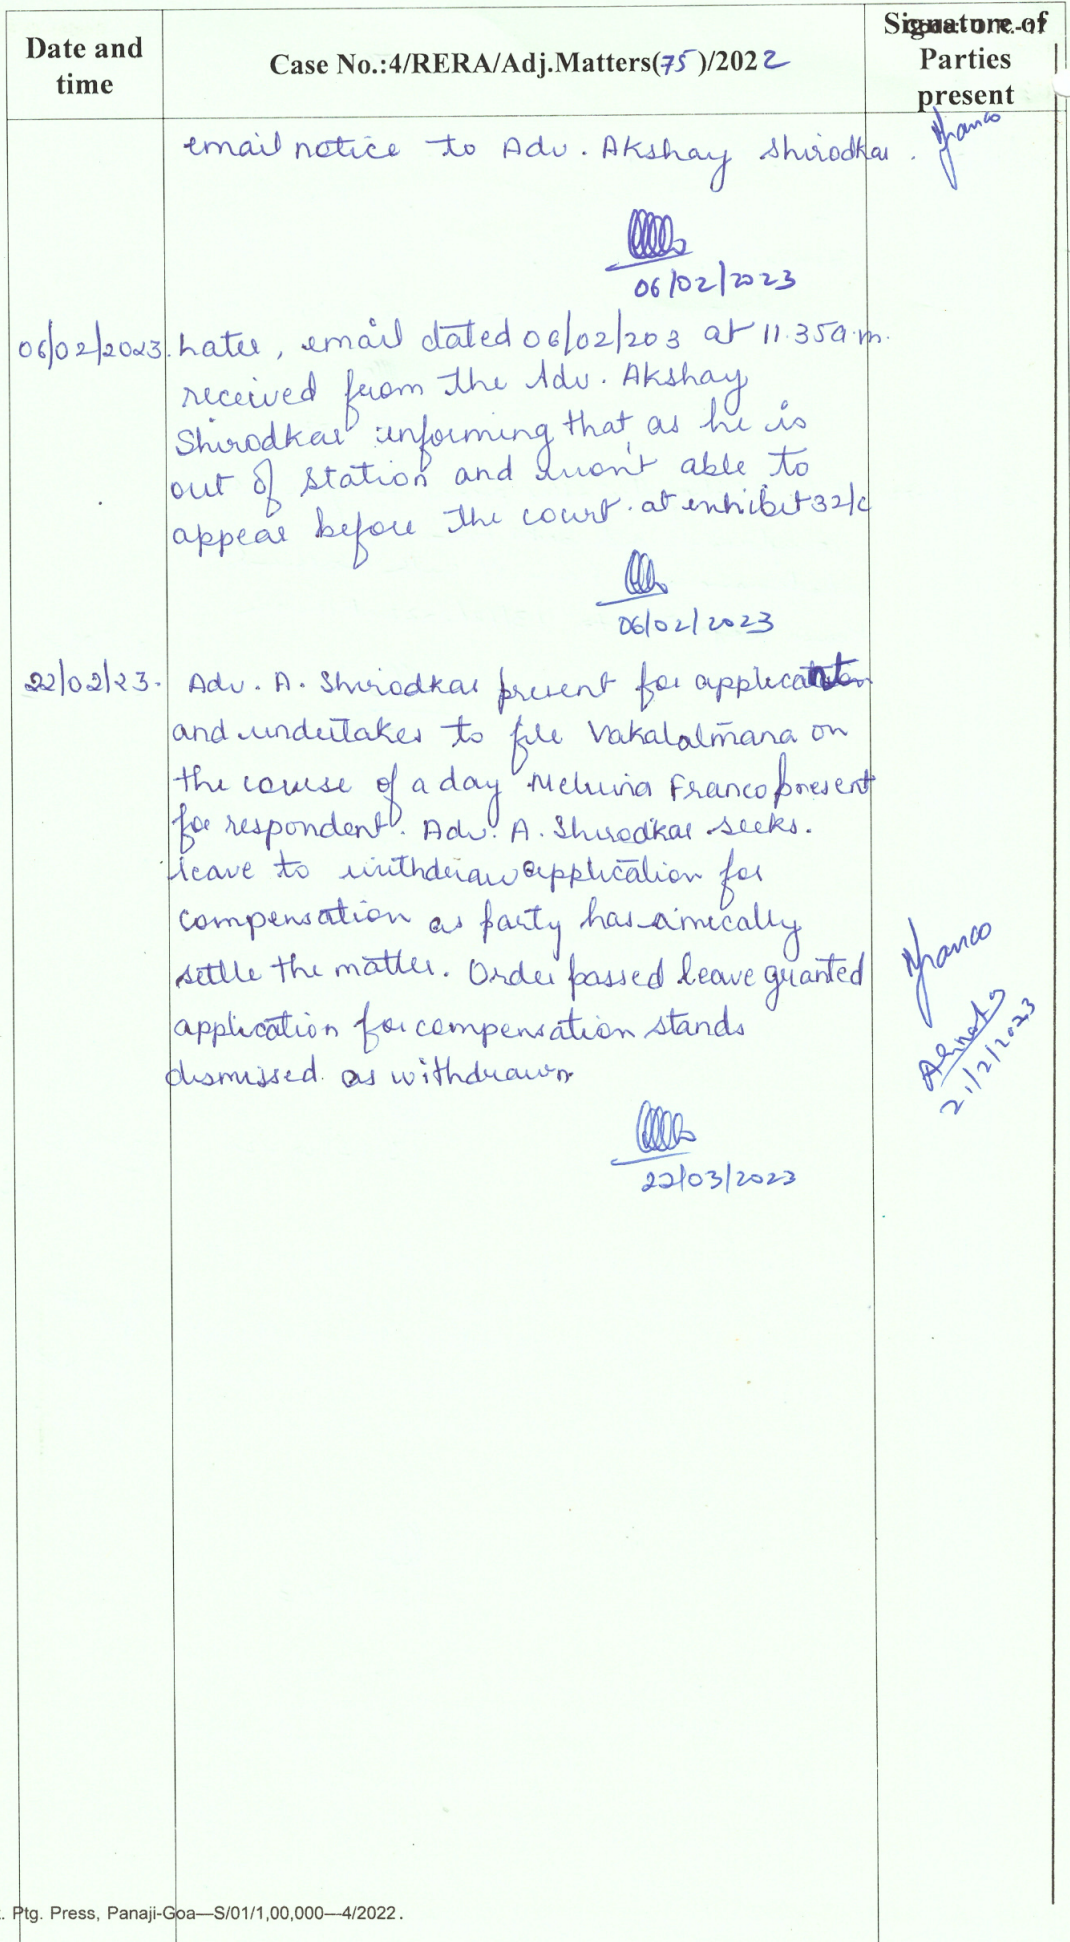 Date and
time
Case No.:4/RERA/Adj.Matters(75)/2022
Signature of
Parties
present
email notice to Adv. Akshay Shirodkar.
Franco
06/02/2023
06/02/2023. Later, email dated 06/02/203 at 11.35a.m.
received from the Adv. Akshay
Shirodkar informing that as he is
out of station and won't able to
appear before the court. at enhibit 32/c
06/02/2023
22/02/23. Adv. A. Shirodkar present for applicant
and undertakes to file Vakalatmana on
the course of a day Melvina Franco present
for respondent. Adv. A. Shirodkar seeks.
leave to withdraw application for
compensation as party has amically
settle the matter. Order passed leave granted
application for compensation stands
dismissed. as withdrawn
Franco
22/03/2023
. Ptg. Press, Panaji-Goa—S/01/1,00,000—4/2022.